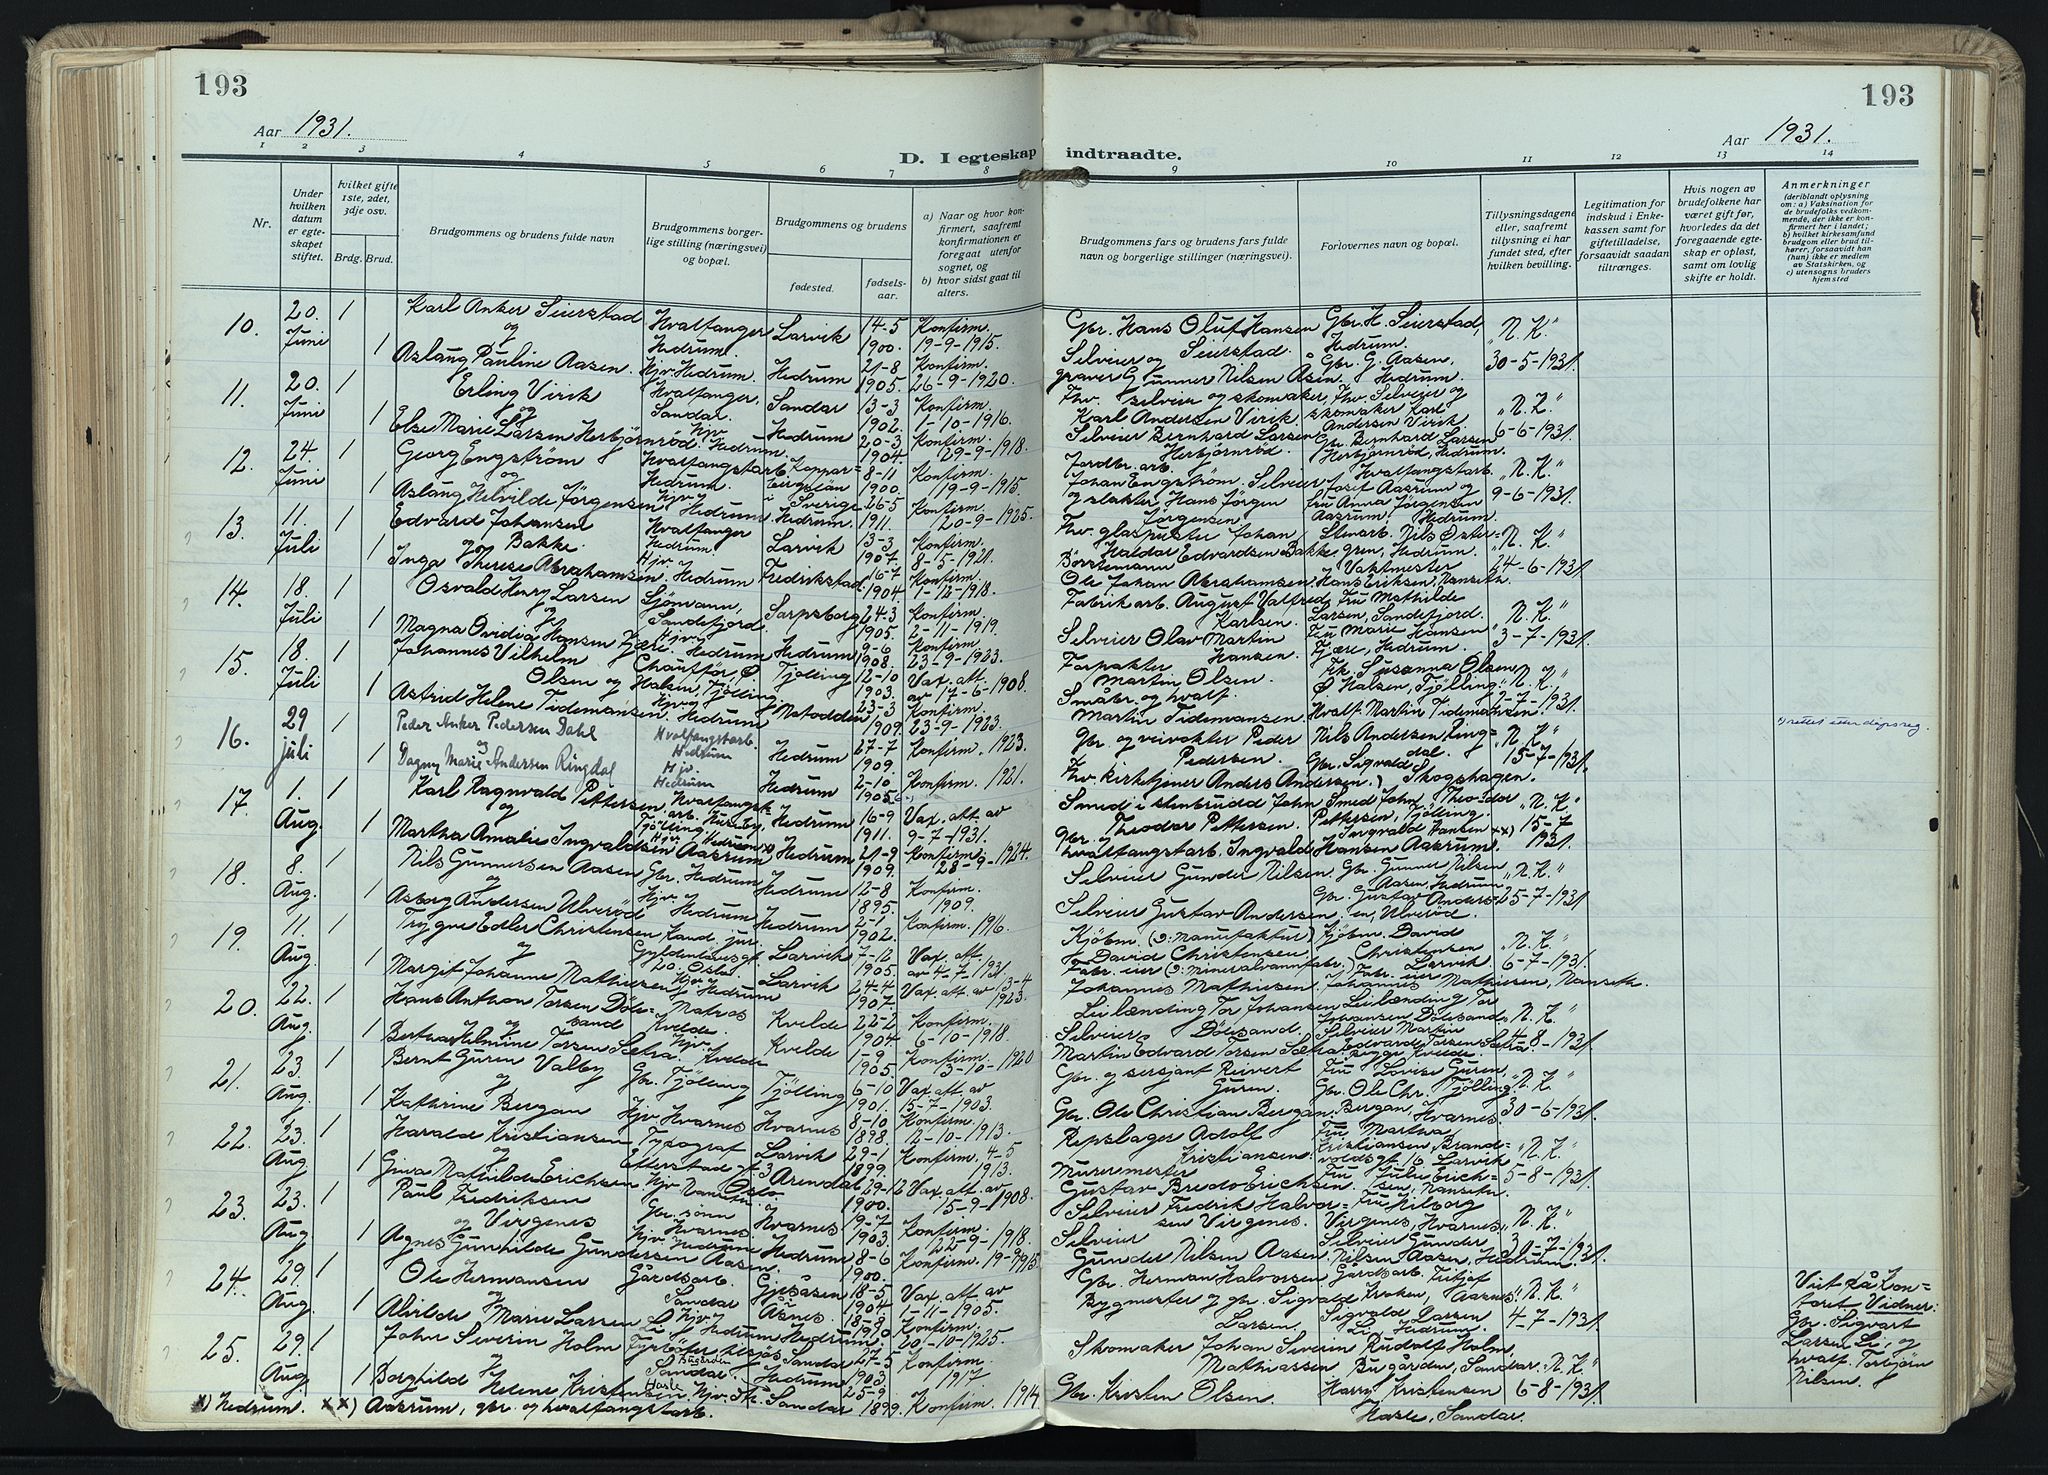 193
193
Aar 1931.
Aar 1931.
D. I egteskap indtraadte.
1 2 3 4 5 6 7 8 9 10 11 12 13 14
Nr.
Under hvilken datum er egteskapet stiftet.
hvilket gifte 1ste, 2det, 3dje osv.
Brdg. Brud.
Brudgommens og brudens fulde navn
Brudgommens borgerlige stilling (næringsvei) og bopæl.
Brudgommens og brudens
fødested.
fødselsaar.
a) Naar og hvor konfirmert, saafremt konfirmationen er foregaat utenfor sognet, og
b) hvor sidst gaat til alters.
Brudgommens fars og brudens fars fulde navn og borgerlige stillinger (næringsvei).
Forlovernes navn og bopæl.
Tillysningsdagene eller, saafremt tillysning ei har fundet sted, efter hvilken bevilling.
Legitimation for indskud i Enkekassen samt for giftetilladelse, forsaavidt saadan tiltrænges.
Hvis nogen av brudefolkene har været gift før, hvorledes da det foregaaende egteskap er opløst, samt om lovlig skifte er holdt.
Anmerkninger (deriblandt oplysning om: a) Vaksination for de brudefolks vedkommende, der ikke er konfirmert her i landet; b) hvilket kirkesamfund brudgom eller brud tilhører, forsaavidt han (hun) ikke er medlem av Statskirken, og c) utensogns bruders hjemsted
10. 20. Juni 1 Karl Anker Seierstad Hvalfanger Hedrum. Larvik 14-5 1900. Konfirm. 19-9-1915. Gbr. Hans Oluf Hansen Seierstad. Gbr. H. Seierstad, Hedrum. "N. K."
og
1 Aslaug Pauline Aasen. Hjv. Hedrum. Hedrum 21-8 1905. Konfirm. 26-9-1920. Selveier og graver Gunner Nilsen Åsen. Gbr. G. Aasen, Hedrum. 30-5-1931.
11. 20. Juni 1 Erling Virik Hvalfanger, Sandar. Sandar 13-3 1902. Konfirm. 1-10-1916. Fhv. selveier og skomaker, Karl Andersen Virik Fhv. Selveier og skomaker Karl Andersen Virik "N. K."
og
1 Else Marie Larsen Herbjørnrød. Hjv. Hedrum. Hedrum 20-3 1904. Konfirm. 29-9-1918. Selveier Bernhard Larsen Herbjörnröd. Gbr. Bernhard Larsen Herbjörnröd, Hedrum. 6-6-1931.
12. 24 Juni 1 Georg Engström Hvalfangstarb. Hedrum. Kopparbergslän i Sverige 8-11 1900. Konfirm. 19-9-1915. Jordbr. arb. Johan Engström. Hvalfangstarb. Josef Aasrum og "N. K."
og
1 Aslaug Helvilde Jörgensen Hjv. Hedrum Hedrum. 26-5 1911. Konfirm. 20-9-1925. Selveier og slakter Hans Jörgen Jörgensen. fru Anna Jörgensen Aasrum, Hedrum. 9-6-1931.
13. 11. Juli 1 Edvard Johansen Bakke. Hvalfanger Hedrum. Larvik 13-3 1907. Konfirm. 8-5-1921. Fhv. glaspuster Johan Haldor Edvardsen Bakke. Stenarb. Nils Østergren, Hedrum. "N. K."
og
1 Inga Therese Abrahamsen. Hjv. Hedrum Fredrikstad 16-7 1904. Konfirm. 1-12-1918. Börstemann Ole Johan Abrahamsen. Vaktmester Hans Eriksen, Nanseth. 24-6-1931.
14. 18. Juli 1 Osvald Henry Larsen Sjömann, Sandefjord. Sarpsborg 24-3 1905. Konfirm. 2-11-1919. Fabrikarb. August Valfred Karlsen. Fru Mathilde Larsen, Sandefjord. "N. K."
og
1 Magna Ovidia Hansen Fjære. Hjv. Hedrum Hedrum 9-6 1908. Konfirm. 23-9-1923. Selveier Olav Martin Hansen. Fru Marie Hansen Fjære, Hedrum. 3-7-1931.
15. 18. Juli 1 Johannes Vilhelm Olsen og Chauffør, Ø. Halsen, Tjölling Tjölling 12-10 1903. Vax. att. av 17-6-1908. Forpakter Martin Olsen. Frk. Susanna Olsen, Ø. Halsen, Tjölling. "N. K."
1 Astrid Helene Tidemansen. Hjv. Hedrum Notodden 23-3 1909. Konfirm. 23-9-1923. Småbr. og hvalf. Martin Tidemansen. Hvalf. Martin Tidemansen 2-7-1931.
16. 29 juli 1 Peder Anker Pedersen Dahl Hvalfangstarb. Hedrum Hedrum 27-7 1909. Konfirm. 1923. Gbr. og veivokter Peder Pedersen. Nils Andersen Ringdal. "N. K."
og
1 Dagny Marie Andersen Ringdal Hjv. Hedrum Hedrum 2-10 1905 Konfirm. 1921. Fhv. kirketjener Anders Andersen. Gbr. Sigvald Skogshagen. 15-7-1931.
17. 1. Aug. 1 Karl Ragnvald Pettersen Hvalfangstarb. Huseby, Tjölling. Hedrum 16-9 1911. Vax. att. av 9-7-1931. Smed i stenbrudd John Theodor Pettersen. Smed John Theodor Pettersen, Tjölling. "N. K."
og
1 Martha Amalie Ingvaldsen Aasrum Hjv. Hedrum x) Hedrum 21-9 1909. Konfirm. 28-9-1924. Gbr. hvalfangstarb. Ingvald Hansen Aasrum. Ingvald Hansen xx) 15-7 1931.
18. 8. Aug. 1 Nils Gunnersen Aasen Gbr. Hedrum Hedrum 12-8 1895. Konfirm. 1909. Selveier Gunder Nilsen. Gbr. Gunner Nilsen Aasen, Hedrum "N. K."
og
1 Asborg Andersen Ulveröd Hjv. Hedrum Hedrum 2-1 1902. Konfirm. 1916. Selveier Gustav Andersen. Gbr. Gustav Andersen, Ulveröd. 25-7-1931.
19. 11. Aug. 1 Trygve Edler Christensen Kand. jur. Gyldenløvesgt. 20 Oslo. Larvik 7-12 1905. Vax. att. av 4-7-1931. Kjöbm. (ɔ: manufaktur) David Christensen. Kjöbm. David Christensen Larvik "N. K."
og
1 Margit Johanne Mathiesen Hjv. Hedrum Larvik 24-4 1907. Vax. att. 13-4 1923. Fabr. eier (ɔ: mineralvannfabr.) Johannes Mathiesen. Fabr. eier Johannes Mathiesen, Nanseth. 6-7-1931.
20. 22. Aug. 1 Hans Anthon Torsen Dölesand Matros Kvelde. Kvelde 22-2 1904 Konfirm. 6-10-1918. Leilending Tor Johansen Dölesand. Leilending Tor Johansen Dölesand. "N. K."
og
1 Bertha Helmine Torsen Sætra. Hjv. Kvelde Kvelde 1-9 1905. Konfirm. 3-10-1920 Selveier Martin Edvard Torsen Sætra. Selveier Martin Edvard Torsen Sætra Kvelde. 4-8-1931.
21. 23. Aug. 1 Bernt Guren Valby Gbr. Tjölling Tjölling 6-10 1901. Vax. att. av 15-7-1903. Gbr. og sersjant Reivert Guren. Fru Lovise Guren, Tjölling "N. K."
og
1 Kathrine Bergan Hjv. Hvarnes Hvarnes 8-10 1898. Konfirm. 12-10-1913. Gbr. Ole Christian Bergan. Gbr. Ole Chr. Bergan, Hvarnes 30-6-1931.
22. 23. Aug 1 Harald Kristiansen Typograf Efterstadgt. 3 Oslo Larvik 29-1 1899. Konfirm. 4-5 1913. Repslager Adolf Kristiansen. Fru Martha Kristiansen, Brandvoldsgt. 16 Larvik "N. K."
og
1 Gina Mathilde Erichsen Hjv. Nanseth. Arendal 29-12 1900. Vax. att. av 15-9-1908. Muremester Gustav Bredo Erichsen. Fru Julie Erichsen, Nanseth. 5-8-1931.
23. 23. Aug 1 Paul Fredriksen Virgenes Gbr. sönn Hvarnes Hvarnes 19-7 1903. Konfirm. 22-9-1918. Selveier Fredrik Halvorsen Virgenes. Fru Hilborg Virgenes, Hvarnes "N. K."
og
1 Agnes Gunhilde Gundersen Aasen. Hjv. Hedrum Hedrum 8-6 1900. Konfirm. 19-9-1915. Selveier Gunder Nilsen Aasen Selveier Gunder Nilsen Aasen, Hedrum. 31-7-1931.
24. 29. Aug 1 Ole Hermansen Gårdsarb. Sandar Gjesåsen Åsnes. 18-5 1904. Vax. att. av 1-11-1905. Gbr. Herman Halvorsen Gårdsarb. Fritjof Kroken, Aasnes. "N. K."
og
1 Alvilde Marie Larsen Li Hjv. Hedrum Hedrum 18-8 1910 Konfirm. 20-10-1925. Bygmester og gbr. Sigvald Larsen. Sigvald Larsen Li, Hedrum. 4-7-1931.
Viet på kontoret. Vidner: Gbr. Sigvart Larsen Li, og hvalf. Torbjörn Nilsen.
25. 29. Aug. 1 John Severin Holm Fyrbøter Bugården Sandar. Sandar 27-5 1903 Konfirm. 1917. Skomaker Johan Severin Mathiassen Rudolf Holm, Bugården, Sandar. "N. K."
og
1 Borghild Helene Kristensen Hasle Hjv. Sandar 25-9 1899. Konfirm. 1914. Gbr. Kristen Olsen. Harry Kristensen Hasle, Sandar. 6-8-1931.
x) Hedrum. xx) Aasrum, gbr. og hvalfangstarb.